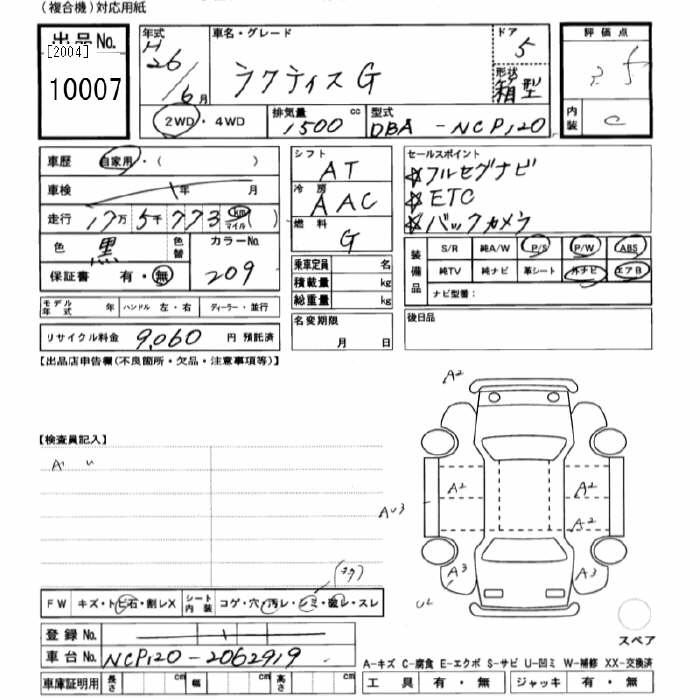 (複合機)対応用紙
出品No.
[2004]
10007
年式
H26/6月
車名・グレード
ラクティスG
ドア
5
形状
箱型
2WD・4WD
排気量
1500 cc
型式
DBA-NCP120
評価点
5
内装
C
車歴 自家用・( )
車検 年 月
走行 17万5千773 km マイル ( )
色 黒 色替
カラーNo.
209
保証書 有・無
モデル年式 年 ハンドル 左・右 ディーラー・並行
リサイクル料金 9,060 円 預託済
シフト
AT
冷房
AAC
燃料
G
乗車定員 名
積載量 kg
総重量 kg
名変期限
月 日
セールスポイント
☆フルセグナビ
☆ETC
☆バックカメラ
装備品
S/R 純A/W P/S P/W ABS
純TV 純ナビ 革シート 外ナビ エアB
ナビ型番:
後日品
【出品店申告欄(不良箇所・欠品・注意事項等)】
【検査員記入】
A' U
A2
A2
A2
AU3
A2
A3
A3
U2
FW キズ・トビ石・割レX シート内装 コゲ・穴・汚レ・シミ・破レ・スレ
登録No.
車台No. NCP120-2062919
車庫証明用 長さ cm 幅 cm 高さ cm
スペア
A-キズ C-腐食 E-エクボ S-サビ U-凹ミ W-補修 XX-交換済
工具 有・無 ジャッキ 有・無